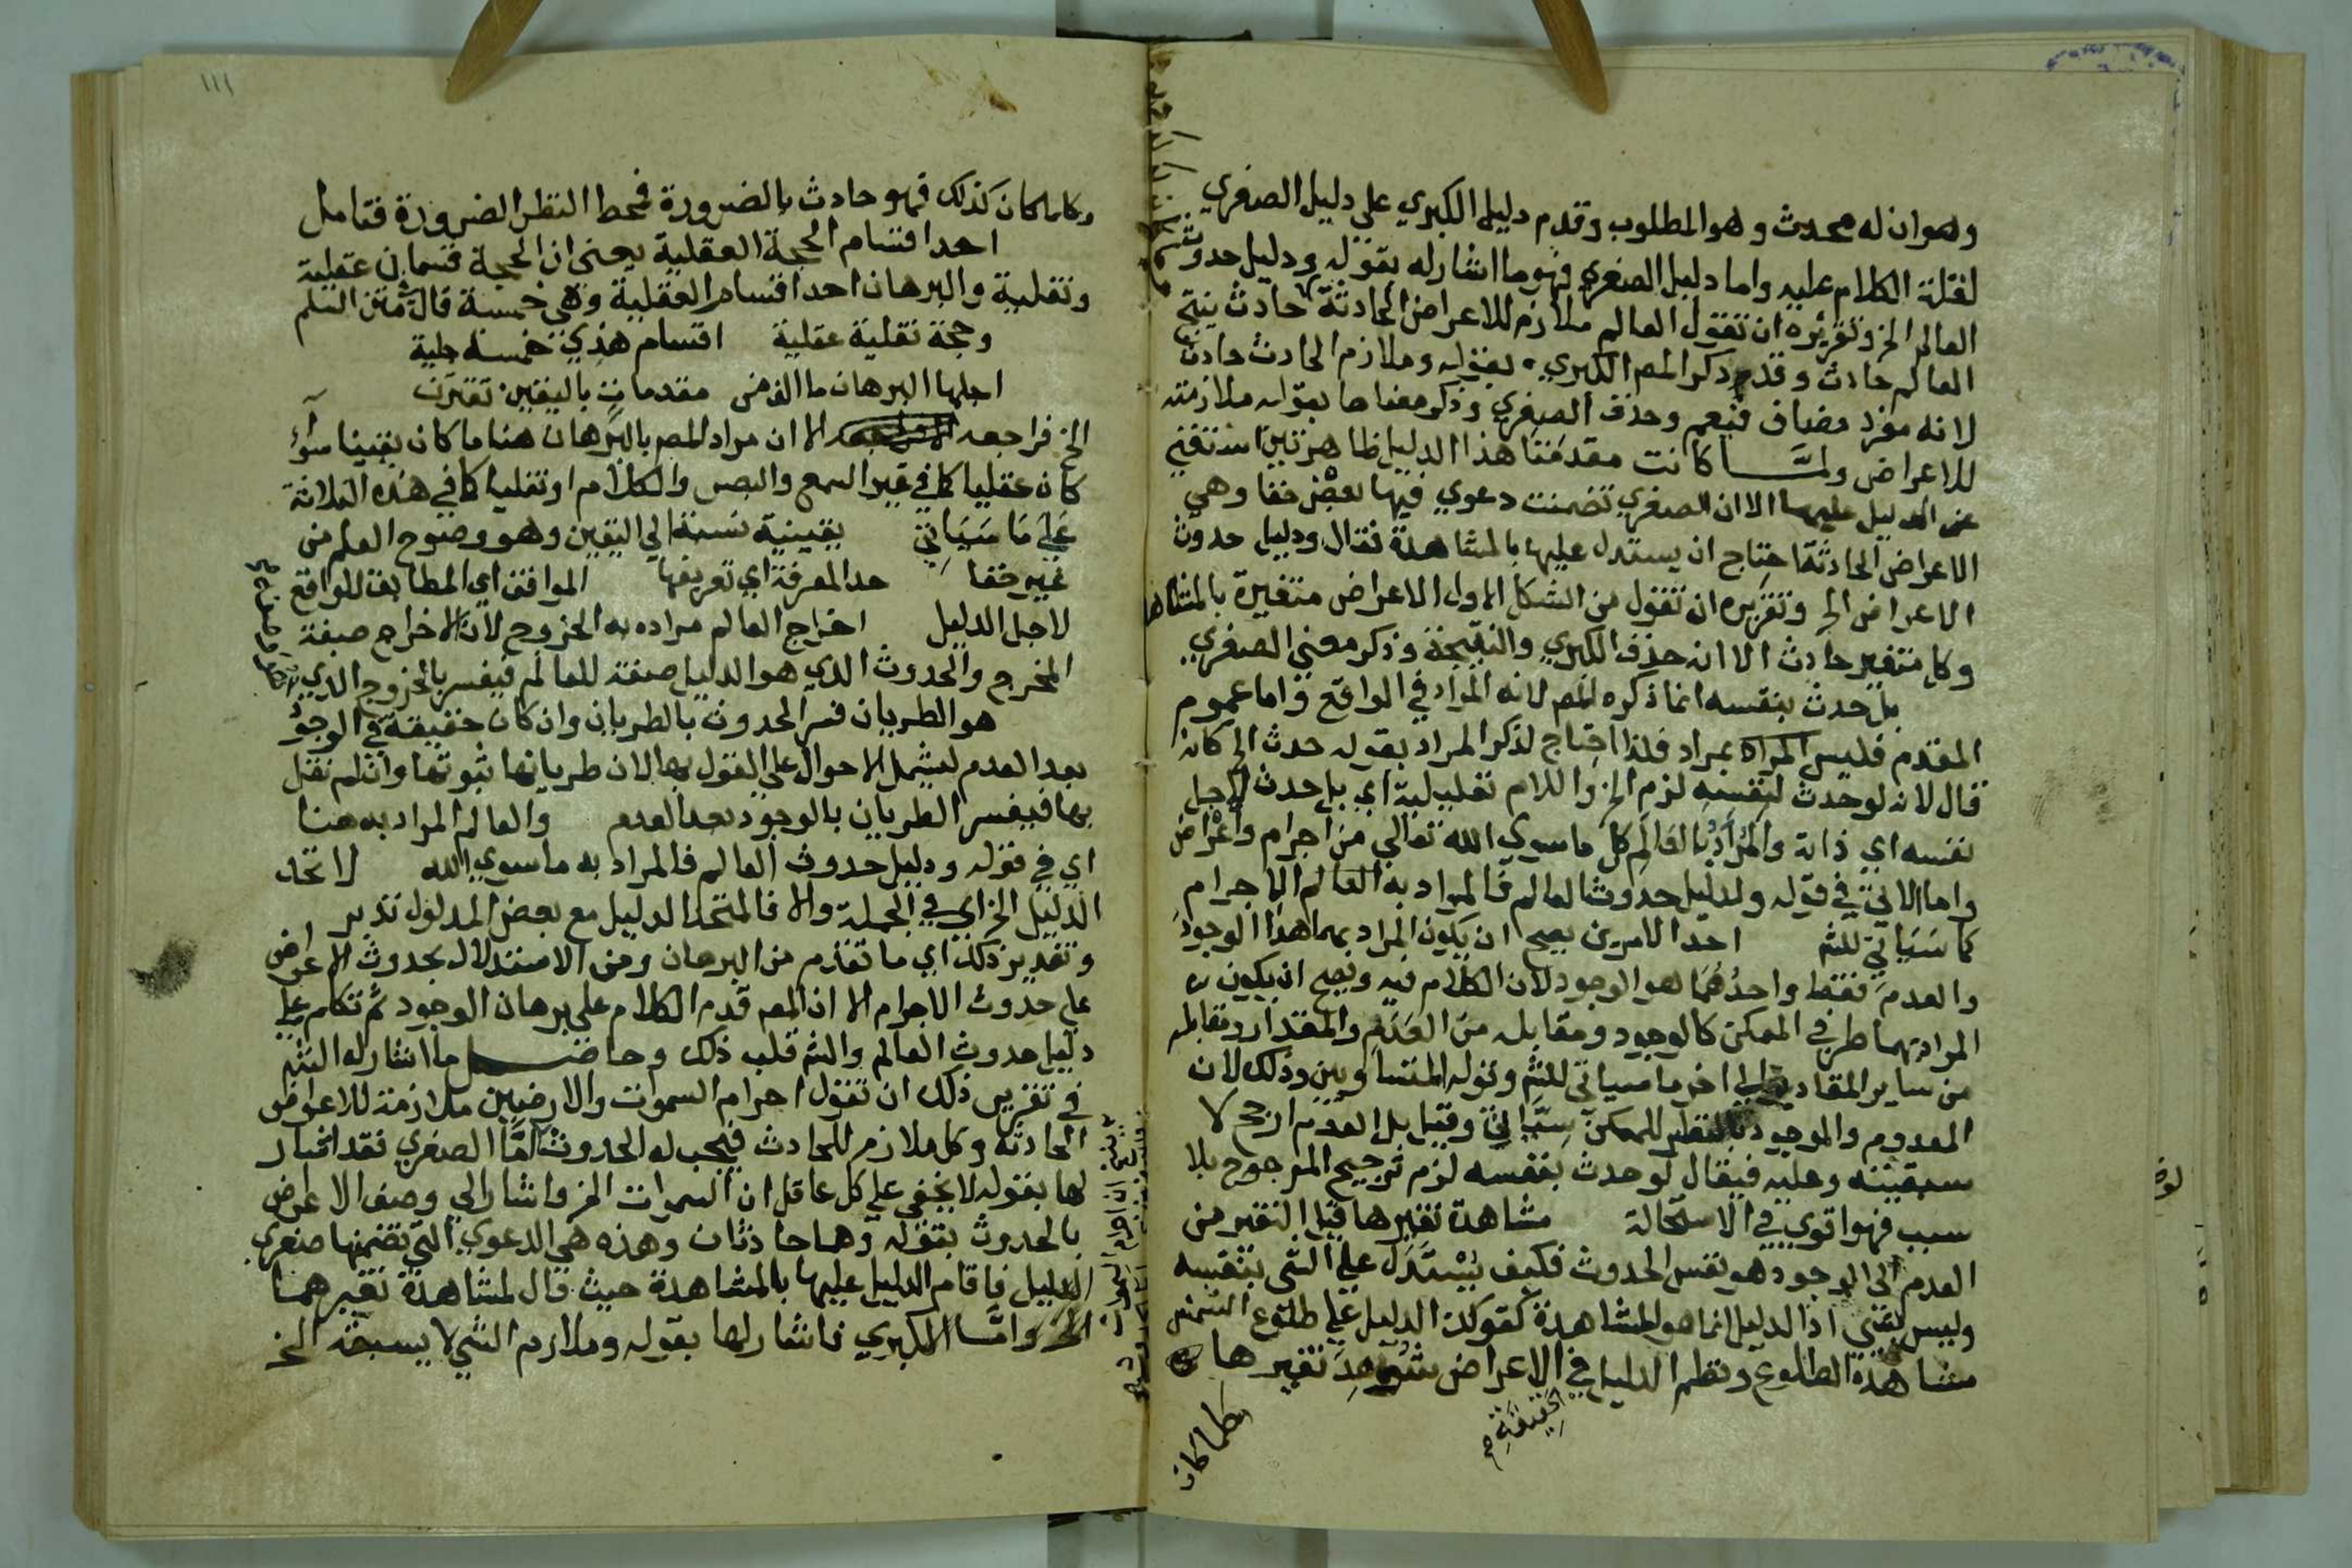 وهو ان له محدث وهو المطلوب وقدم دليل الكبري علي دليل الصغري
لقلة الكلام عليه واما دليل الصغري فهو ما اشار له بقوله ودليل حدوث
العالم الخ وتقريره ان تقول العالم ملازم للاعراض الحادثة حادث ينتج
العالم حادث وقد ذكر المصر الكبري بقوله وملازم الحادث حادث
لانه مفرد مضاف فيعم وحذف الصغري وذكر معناها بقوله ملازمته
للاعراض ولمَّا كانت مقدمتا هذا الدليل ظاهرتين استغني
عن الدليل عليهما الا ان الصغري تضمنت دعوي فيها بعض خفا وهي
الاعراض الحادثة احتاج ان يستدل عليها بالمشاهدة فقال ودليل حدوث
الاعراض الخ وتقريره ان تقول من الشكل الاول الاعراض متغيرة بالمشاهد
وكل متغير حادث الا انه حذف الكبري والنتيجة وذكر معني الصغري
بل حدث بنفسه انما ذكره المصر لانه المراد في الواقع واما عموم
المقدم فليس المراد بمراد فلذا احتاج لذكر المراد بقوله حدث الخ كانه
قال لانه لو حدث لنفسه لزم الخ واللام تعليلية اي بل حدث لاجل
نفسه اي ذاته والمراد بالعالم كل ما سوي الله تعالي من اجرام واعراض
واما الاتي في قوله ولدليل حدوث العالم فالمراد به العالم الاجرام
كما سَيَاتي للشم احد الامرين يصح ان يكون المراد بهما هذا الوجود
والعدم فقط واحدُهُمَا هو الوجود لان الكلام فيه ويصح ان يكون
المراد بهما طرفي الممكن كالوجود ومقابله من العدم والمقدار ومقابله
من ساير المقادير الي اخر ما سياتي للشم وقوله المتساويين وذلك لان
المعدوم والموجود بالنظر للممكن سِيّانِ وقيل بل العدم ارجح لا
سبقيته وعليه فيقال لو حدث بنفسه لزم ترجيح المرجوح بلا
سبب فهو اقوي في الاستحالة مشاهدة تغيرها قيل التغير من
العدم الي الوجود هو نفس الحدوث فكيف يُسْتَدَلُّ علي الشي بنفسه
وليس بشي اذ الدليل انما هو المشاهدة كقولك الدليل علي طلوع الشمس
مشاهدة الطلوع ونظم الدليل في الاعراض شُوهِدَ تغيرها
الحقيقة
وكلما كان
١١١
وكلما كان كذلك فهو حادث بالضرورة فمحط النظر الضرورة فتامل
احد اقسام الحجة العقلية يعني ان الحجة قسمان عقلية
ونقلية والبرهان احد اقسام العقلية وهي خمسة قال في متن السلم
وحجة نقلية عقلية اقسام هذي خمسة جلية
اجلها البرهان ما الف من مقدمات باليقين تقترن
الخ فراجعه الا ان مراد المصر بالبرهان هنا ما كان يقينيا سوآء
كان عقليا كما في غير السمع والبصر والكلام او نقليا كما في هذه الثلاثة
عَلَي مَا سَيَاتِي يقينية نسبة الي اليقين وهو وضوح العلم من
غير خفا حد المعرفة اي تعريفها الموافق اي المطابق للواقع
لاجل الدليل اخراج العالم مراده به الخروج لان الاخراج صفة
المخرج والحدوث الذي هو الدليل صفة للعالم فيفسر بالخروج الذي
هو الطريان فسر الحدوث بالطريان وان كان حقيقة في الوجود
بعد العدم ليشمل الاحوال علي القول بها لان طريانها ثبوتها وان لم نقل
بها فيفسر الطريان بالوجود بعد العدم والعالم المراد به هنا
اي في قوله ودليل حدوث العالم فالمراد به ما سوي الله لاتحد
الدليل الخ اي في الجملة والا فالمتحد الدليل مع بعض المدلول تدبر
وتقدير ذلك اي ما تقدم من البرهان ومن الاستدلال بحدوث الاعراض
علي حدوث الاجرام الا ان المصر قدم الكلام علي برهان الوجود ثم تكلم علي
دليل حدوث العالم والشم قلب ذلك وحاصل ما اشار له الشم
في تقرير ذلك ان تقول اجرام السموات والارضين ملازمة للاعراض
الحادثة وكل ملازم للحادث فيجب له الحدوث امَّا الصغري فقد اشار
لها بقوله لا يخفي علي كل عاقل ان السموات الخ واشار الي وصف الاعراض
بالحدوث بقوله وهما حادثان وهذه هي الدعوي التي تضمنها صغري
الدليل فاقام الدليل عليها بالمشاهدة حيث قال لمشاهدة تغيرهما
الخ وامَّا الكبري فاشار لها بقوله وملازم الشي لا يسبقه الخ